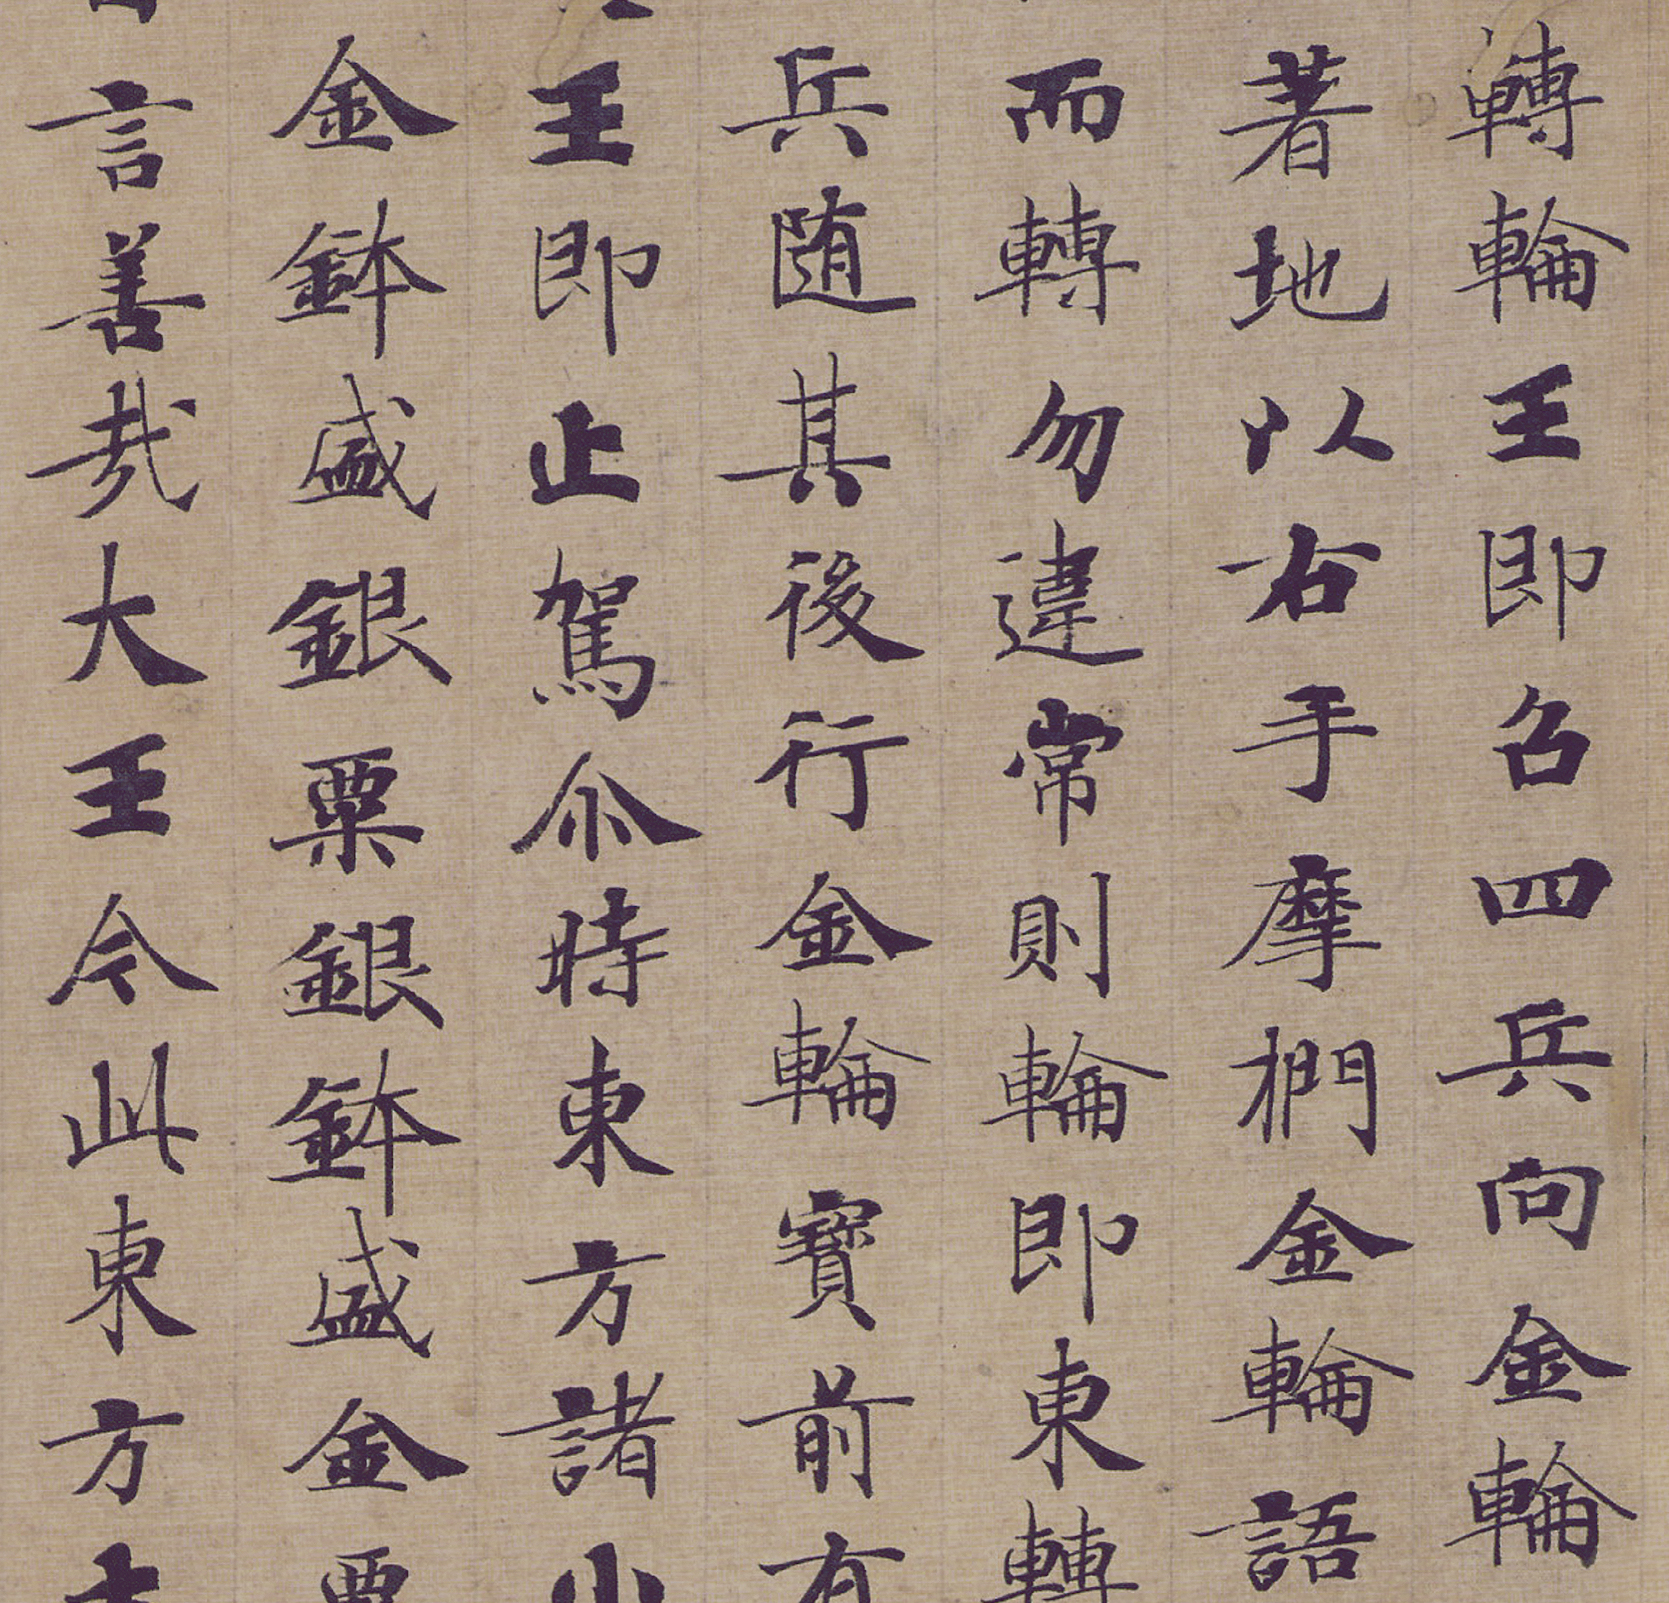 轉輪王即召四兵向金輪
著地以右手摩捫金輪語
而轉勿違常則輪即東轉
兵随其後行金輪寶前有
王即止駕尒時東方諸小
金鉢盛銀粟銀鉢盛金粟
言善哉大王今此東方土